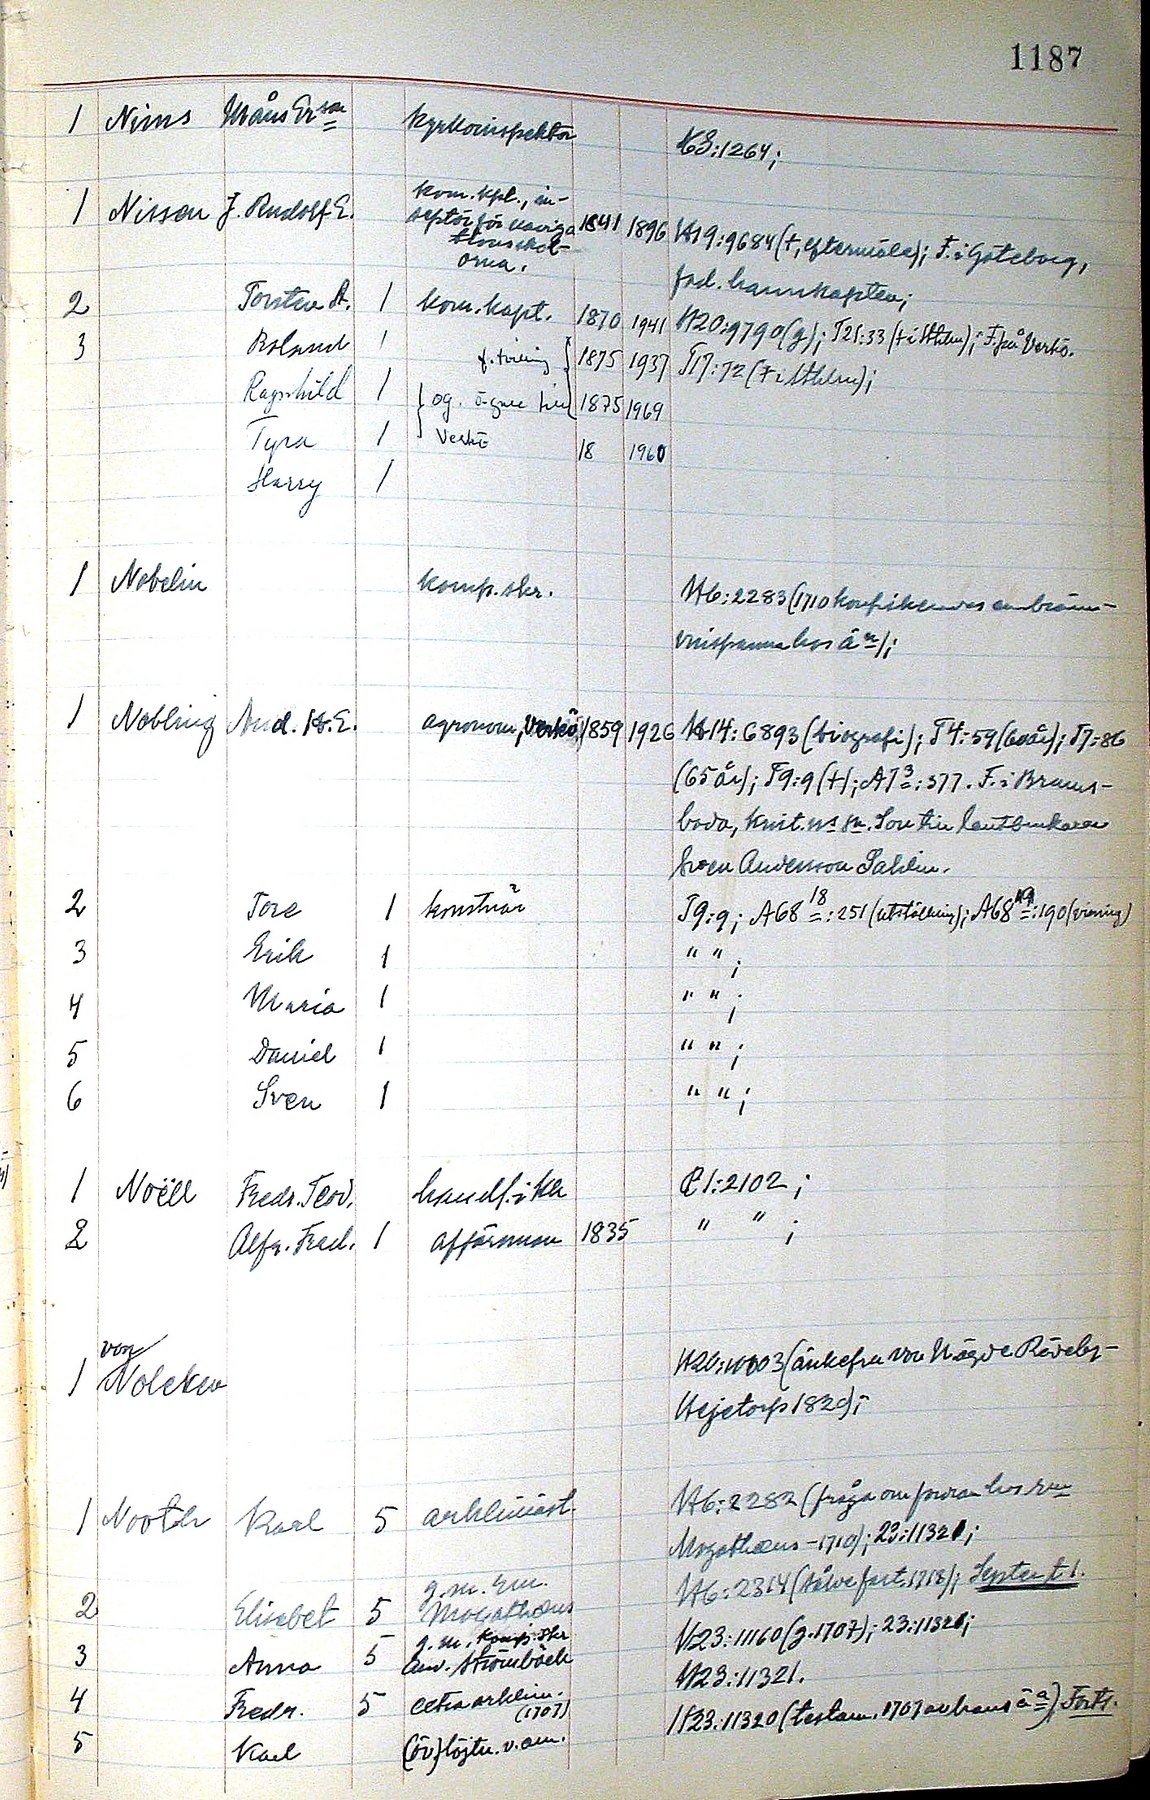 1187
1 Nims Måns Erson kyrkoinspektor K3:1264;
1 Nissen J. Rudolf E. kom.kpt., in-
septör för naviga
tionsskol-
orna. 1841 1896 H19:9684 (†, eftermäle); F. i Göteborg,
fad. hamnkapten;
2 Torsten A. 1 kom.kapt. 1870 1941 H20:9790 (g); T21:33 († i Sthlm); F. på Verkö.
3 Roland 1 f. tvilling 1875 1937 T17:72 († i Sthlm);
Ragnhild 1 og. ägare till 1875 1969
Tyra 1 Verkö 18 1960
Harry 1
1 Nobelin komp.skr. H6:2283 (1710 konfiskerades en bränn-
vinspanna hos än);
1 Nobling And. H.E. agronom, Verkö 1859 1926 H14:6893 (biografi); T4:59 (60 år); T7:86
(65 år); T9:9 (†); A7 3:377. F. i Brams-
boda,
Sven Andersson Sahlin.
2 Tore 1 konstnär T9:9; A68 18:251 (utställning); A68 19:190 (visning)
3 Erik 1 " " ;
4 Maria 1 " " ;
5 Daniel 1 " " ;
6 Sven 1 " " ;
1 Noëll Fredr. Teod. handl. i Kh C1:2102 ;
2 Alfr. Fred. 1 affärsman 1835 " " ;
von
1 Nolcken H20:10003 (änkefru von N ägde Rödeby-
Hejetorp 1820);
1 Nooth Karl 5 arklimäst. H6:2282 (fråga om
-1710); 23:11321;
2 Elisabet 5 g.m. H6:2314 ( 1718);
3 Anna 5 g.m. komp.skr
And. Strömbäck H23:11160 (g. 1707); 23:11321;
4 Fredr. 5 extra arklim.
(1707) H23:11321.
5 Karl (öv)löjtn. v. am. H23:11320 (testam. 1707 av hans äa) Forts.